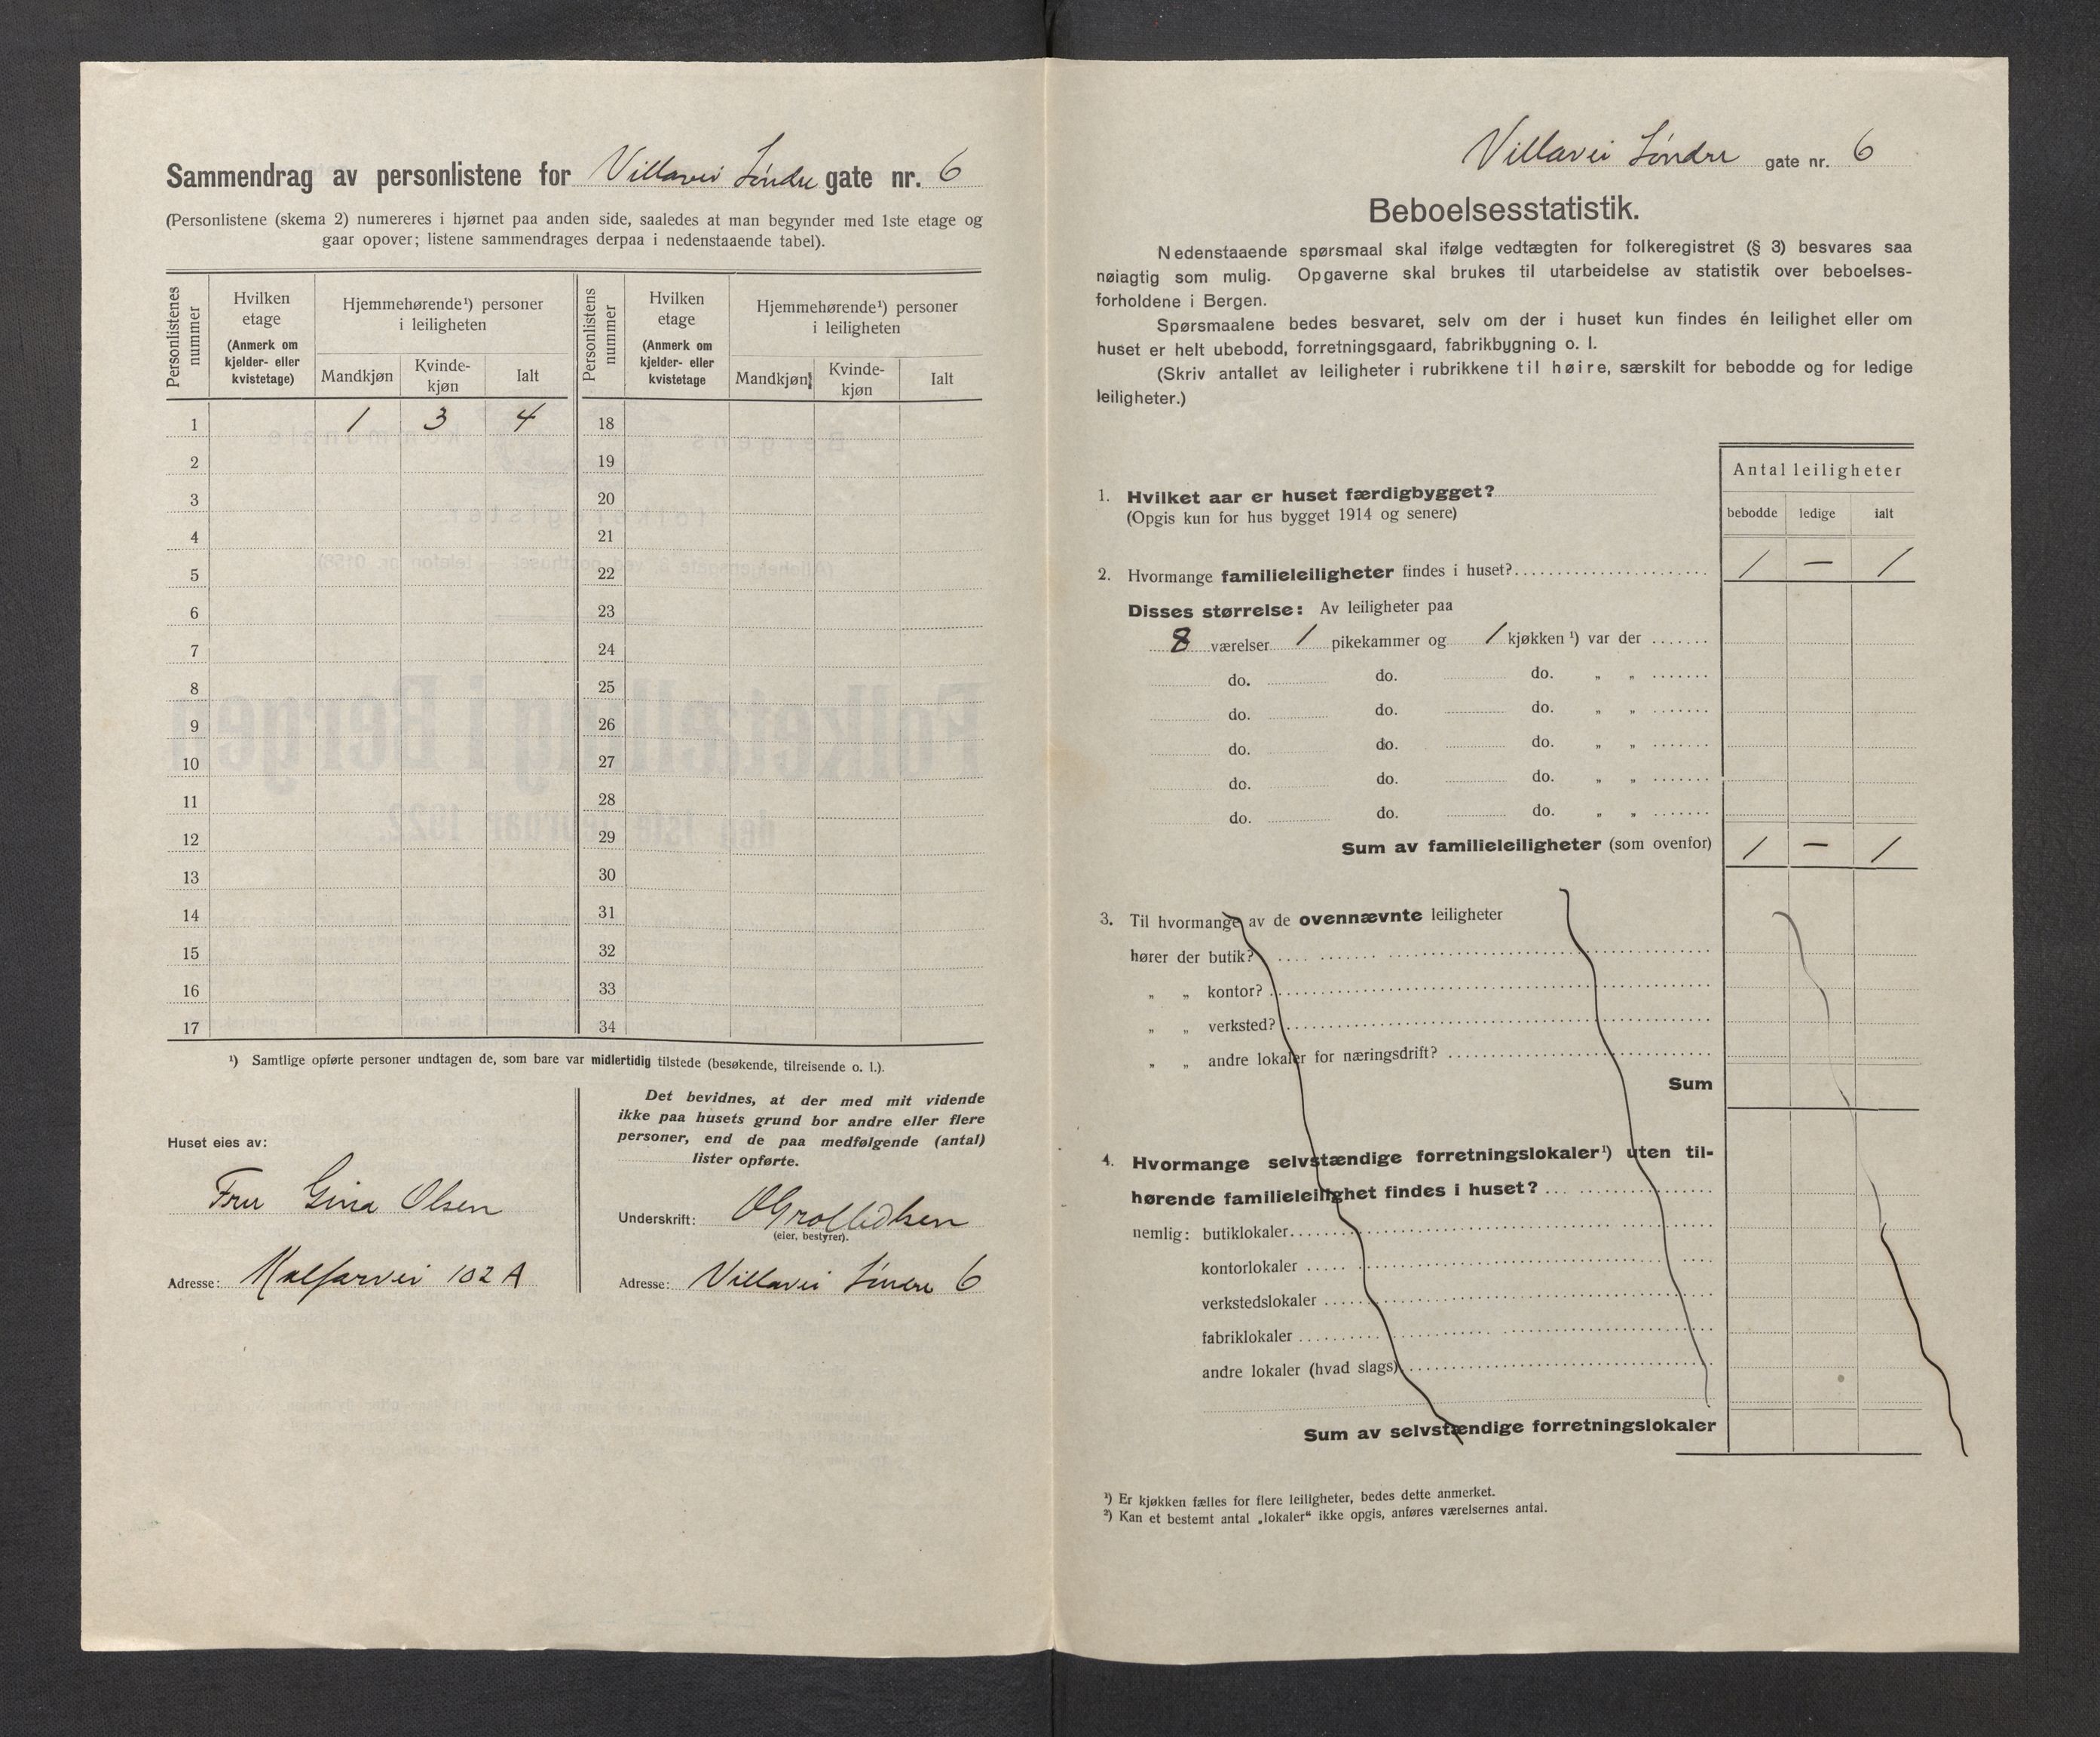 Sammendrag av personlistene for Villavei Söndre gate nr. 6
(Personlistene (skema 2) numereres i hjørnet paa anden side, saaledes at man begynder med 1ste etage og
gaar opover; listene sammendrages derpaa i nedenstaaende tabel).
Personlistenes nummer
Hvilken etage (Anmerk om kjelder- eller kvistetage)
Hjemmehørende¹) personer i leiligheten
Mandkjøn Kvinde-kjøn Ialt
Personlistens nummer
Hvilken etage (Anmerk om kjelder- eller kvistetage
Hjemmehørende¹) personer i leiligheten
Mandkjøn Kvinde-kjøn Ialt
1 1 3 4 18
2 19
3 20
4 21
5 22
6 23
7 24
8 25
9 26
10 27
11 28
12 29
13 30
14 31
15 32
16 33
17 34
¹) Samtlige opførte personer undtagen de, som bare var midlertidig tilstede (besøkende, tilreisende o. l.).
Huset eies av:
Fru Gina Olsen
Adresse: Kalfarvei 102 A
Det bevidnes, at der med mit vidende
ikke paa husets grund bor andre eller flere
personer, end de paa medfølgende (antal)
lister opførte.
Underskrift:
(eier, bestyrer).
Adresse: Villavei Söndre 6
Villavei Söndre gate nr. 6
Beboelsesstatistik.
Nedenstaaende spørsmaal skal ifølge vedtægten for folkeregistret (§ 3) besvares saa
nøiagtig som mulig. Opgaverne skal brukes til utarbeidelse av statistik over beboelses-
forholdene i Bergen.
Spørsmaalene bedes besvaret, selv om der i huset kun findes én leilighet eller om
huset er helt ubebodd, forretningsgaard, fabrikbygning o. l.
(Skriv antallet av leiligheter i rubrikkene til høire, særskilt for bebodde og for ledige
leiligheter.)
Antal leiligheter
bebodde ledige ialt
1. Hvilket aar er huset færdigbygget?
(Opgis kun for hus bygget 1914 og senere)
2. Hvormange familieleiligheter findes i huset? 1 — 1
Disses størrelse: Av leiligheter paa
8 værelser 1 pikekammer og 1 kjøkken ¹) var der
do. do. do. „ „
do. do. do. „ „
do. do. do. „ „
do. do. do. „ „
do. do. do. „ „
Sum av familieleiligheter (som ovenfor) 1 — 1
3. Til hvormange av de ovennævnte leiligheter
hører der butik?
„ „ kontor?
„ „ verksted?
„ „ andre lokaler for næringsdrift?
Sum
4. Hvormange selvstændige forretningslokaler¹) uten til-
hørende familieleilighet findes i huset?
nemlig: butiklokaler
kontorlokaler
verkstedslokaler
fabriklokaler
andre lokaler (hvad slags)
Sum av selvstændige forretningslokaler
¹) Er kjøkken fælles for flere leiligheter, bedes dette anmerket.
²) Kan et bestemt antal „lokaler“ ikke opgis, anføres værelsernes antal.